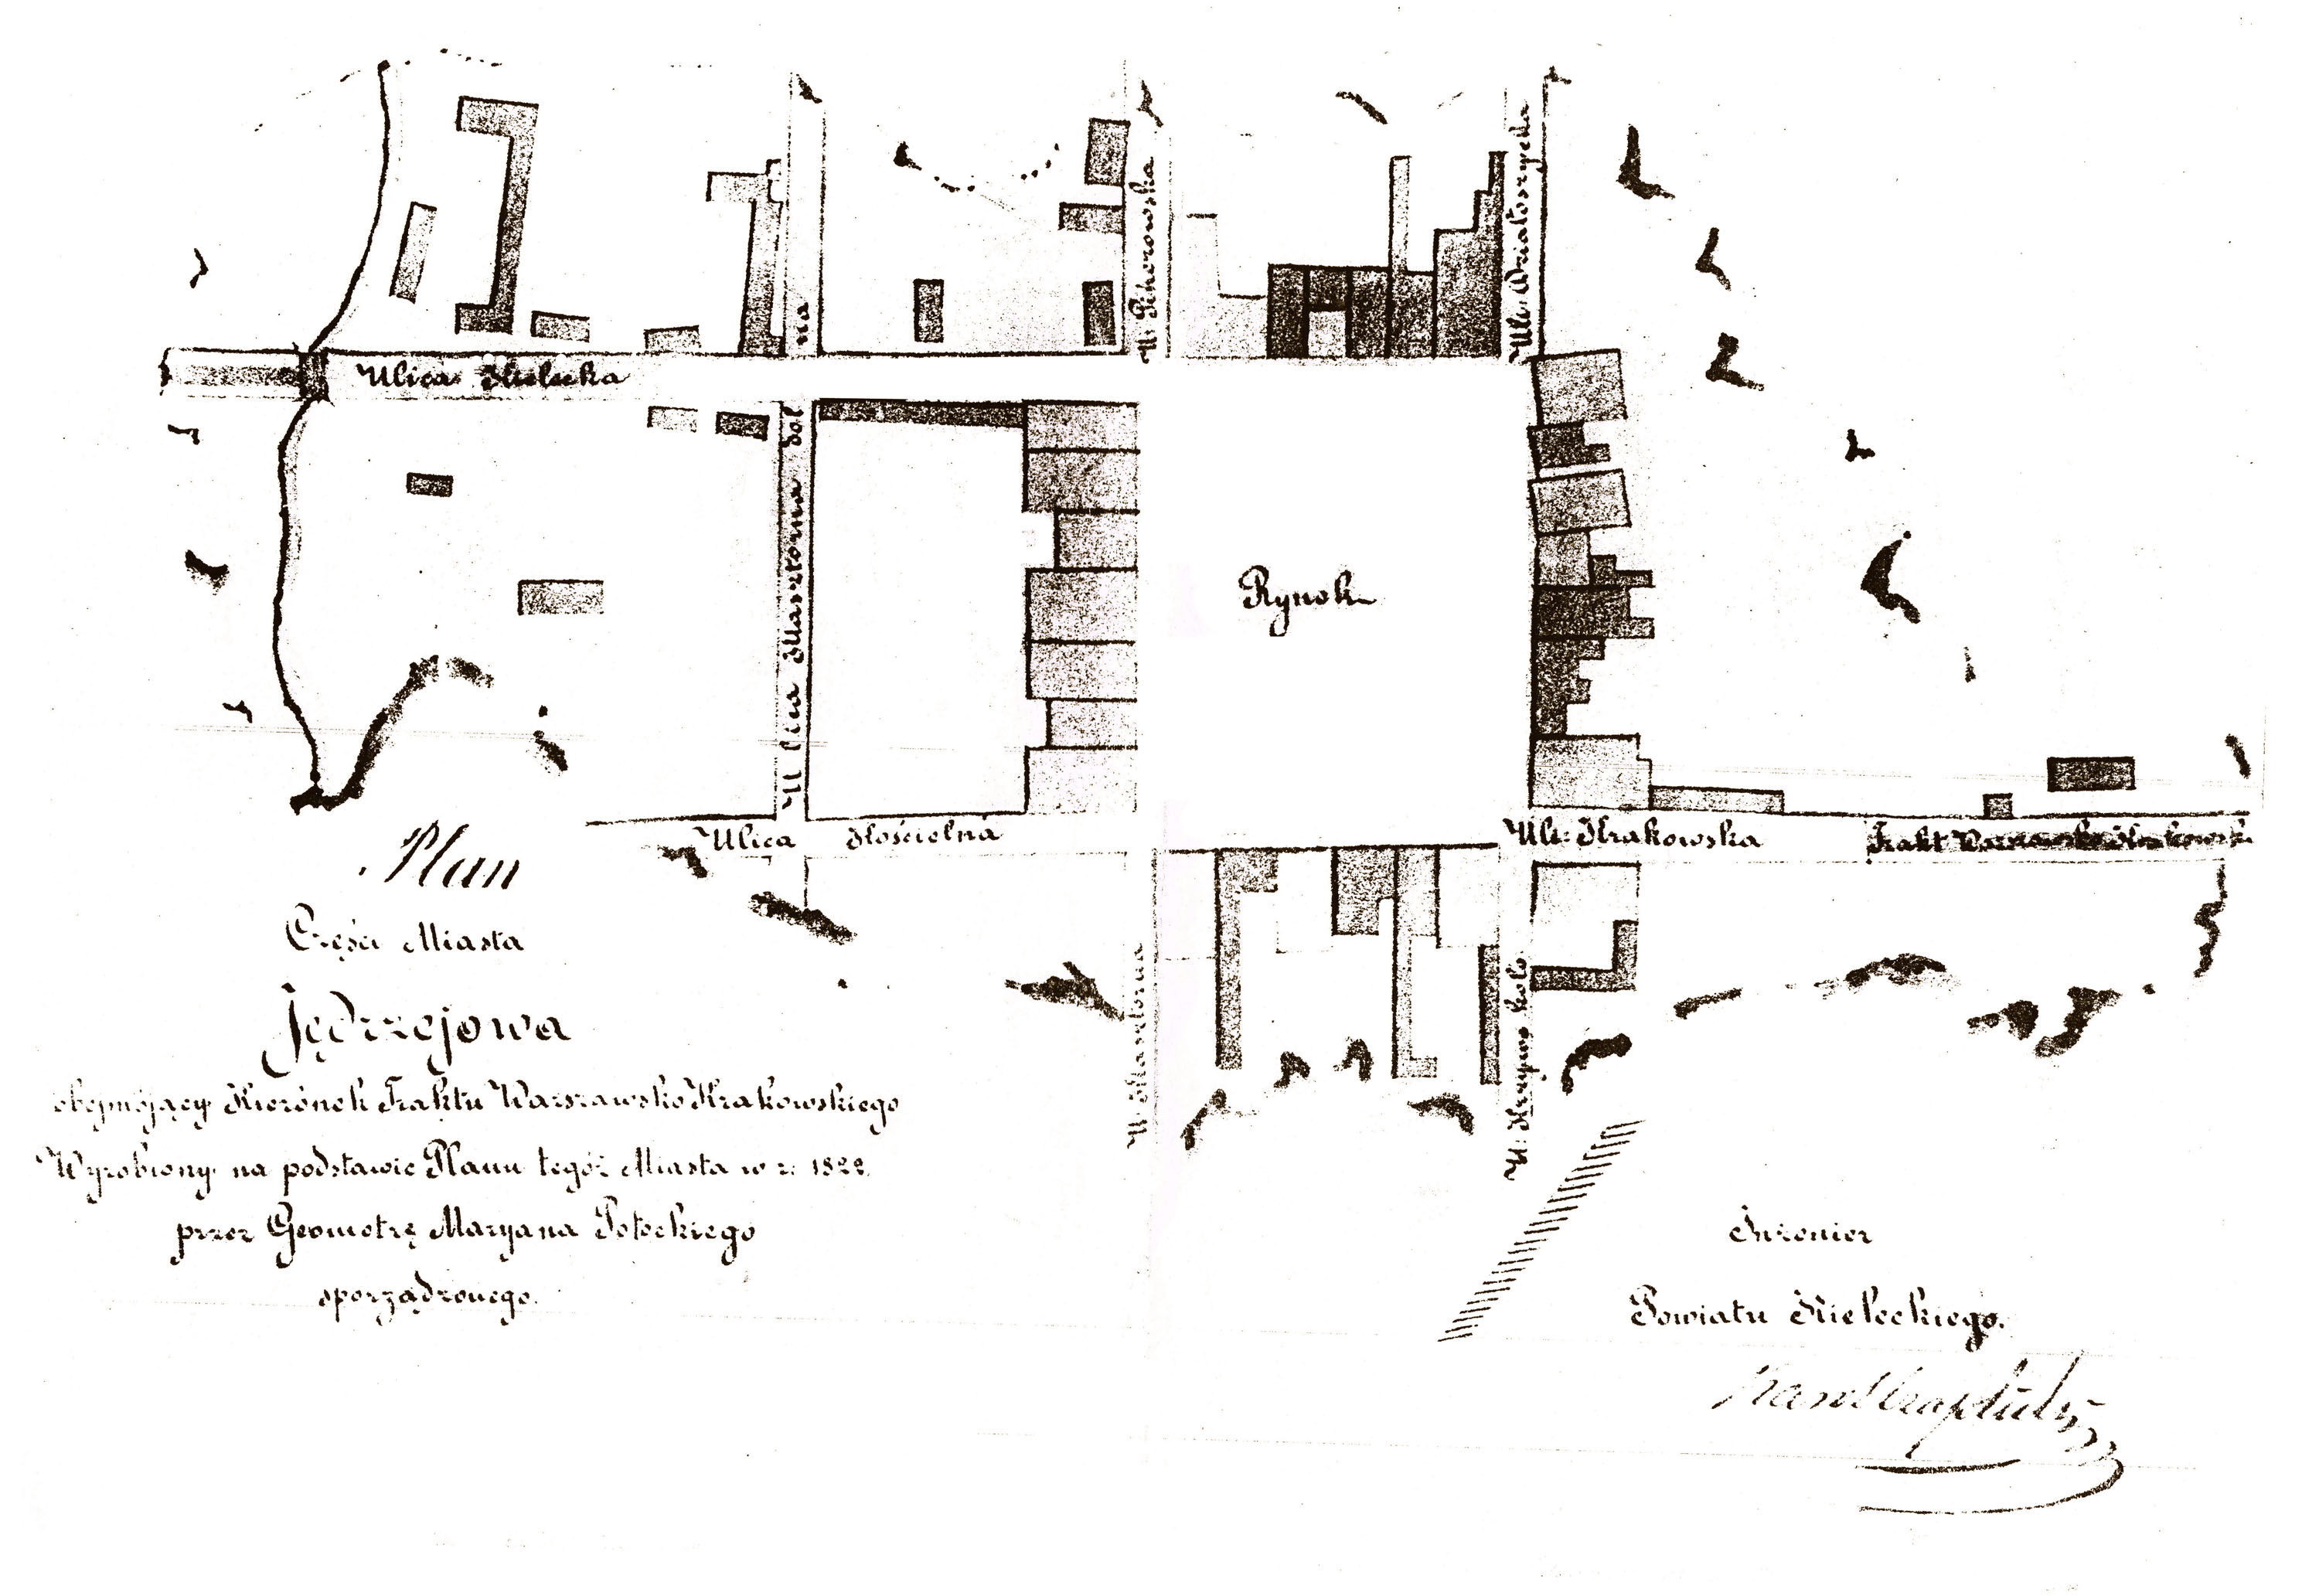 Ulica Kielecka
na
U: Pińczowska
Ul: Dziatoszycka
Ulica Klasztorna dol
Rynek
Ulica Kościelna
Ul: Krakowska
Trakt Warszawsko Krakowski
U: Klasztorna
U: Krzywe koło
Plan
Części Miasta
Jędrzejowa
obejmujący Kierónek Traktu Warszawsko Krakowskiego
Wyrobiony na podstawie Planu tegóż Miasta w r. 1822
przez Geometrę Maryana Potockiego
sporządzonego.
Inżenier
Powiatu Kieleckiego.